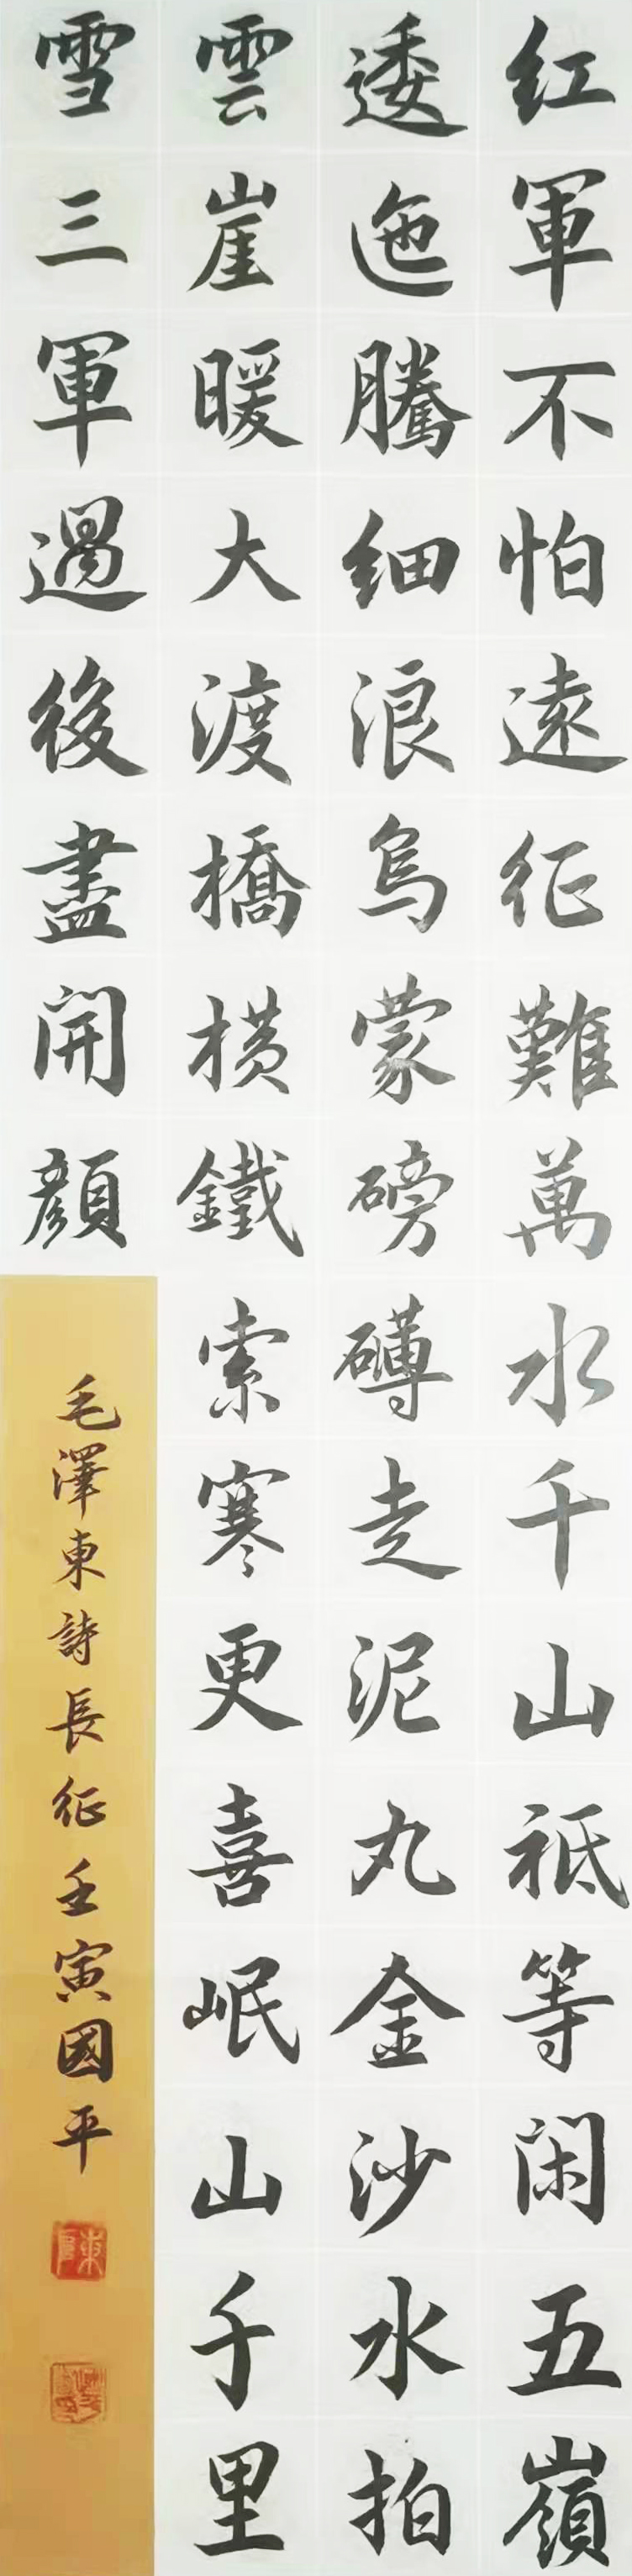 红軍不怕遠征難萬水千山祗等閑五嶺
逶迤騰细浪烏蒙磅礡走泥丸金沙水拍
雲崖暖大渡橋横鐵索寒更喜岷山千里
雪三軍過後盡開顔
毛澤東詩長征壬寅國平